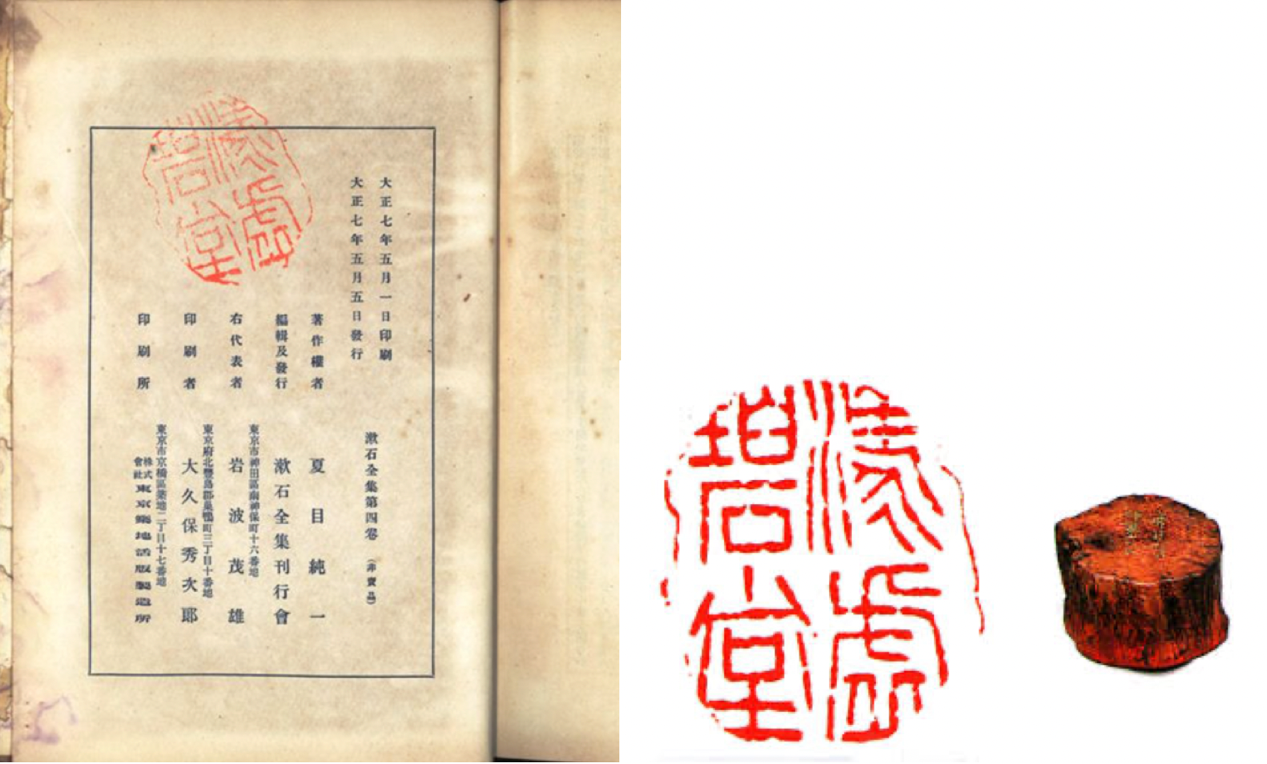 漾虛碧堂
大正七年五月一日印刷
大正七年五月五日發行
漱石全集第四卷（非賣品）
著作權者 夏目純一
編輯及發行 漱石全集刊行會
東京市神田區南神保町十六番地
右代表者 岩波茂雄
東京府北豐島郡巢鴨町三丁目十番地
印刷者 大久保秀次郎
東京市京橋區築地二丁目十七番地
印刷所 株式會社東京築地活版製造所
漾虛碧堂